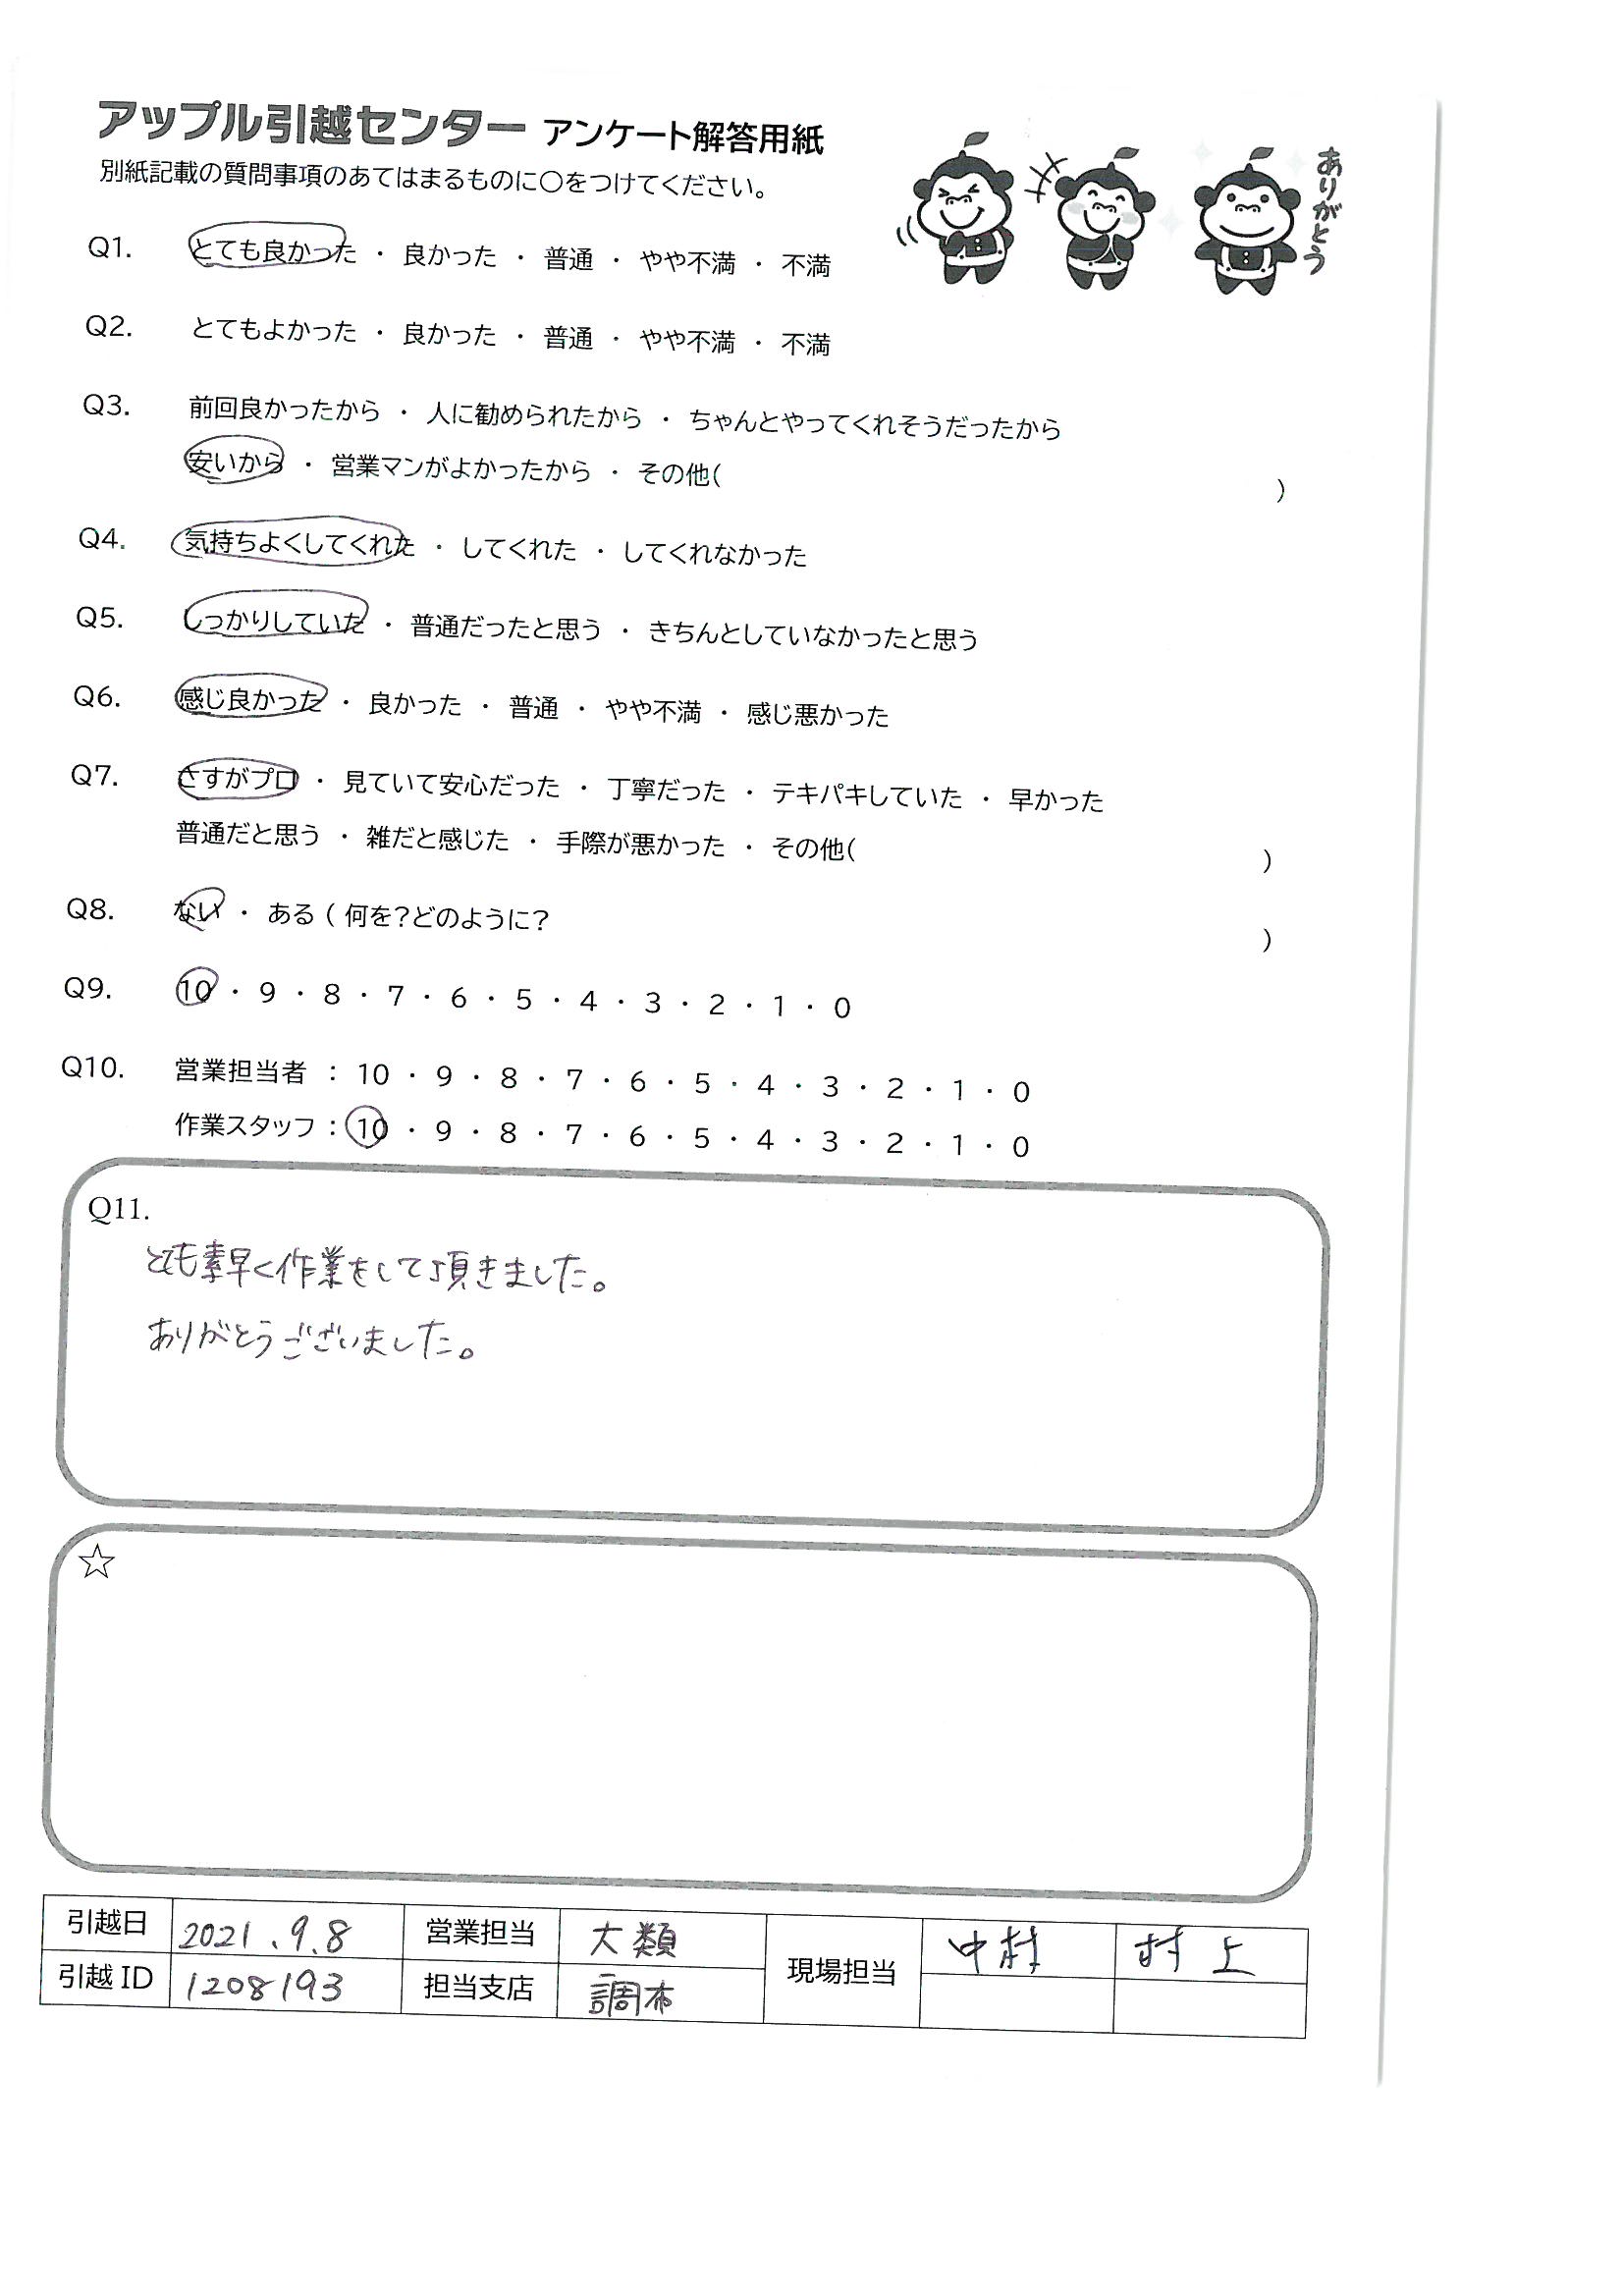 アップル引越センター アンケート解答用紙
別紙記載の質問事項のあてはまるものに○をつけてください。
ありがとう
Q1. とても良かった ・ 良かった ・ 普通 ・ やや不満 ・ 不満
Q2. とてもよかった ・ 良かった ・ 普通 ・ やや不満 ・ 不満
Q3. 前回良かったから ・ 人に勧められたから ・ ちゃんとやってくれそうだったから
安いから ・ 営業マンがよかったから ・ その他( )
Q4. 気持ちよくしてくれた ・ してくれた ・ してくれなかった
Q5. しっかりしていた ・ 普通だったと思う ・ きちんとしていなかったと思う
Q6. 感じ良かった ・ 良かった ・ 普通 ・ やや不満 ・ 感じ悪かった
Q7. さすがプロ ・ 見ていて安心だった ・ 丁寧だった ・ テキパキしていた ・ 早かった
普通だと思う ・ 雑だと感じた ・ 手際が悪かった ・ その他( )
Q8. ない ・ ある ( 何を?どのように? )
Q9. 10 ・ 9 ・ 8 ・ 7 ・ 6 ・ 5 ・ 4 ・ 3 ・ 2 ・ 1 ・ 0
Q10. 営業担当者 : 10 ・ 9 ・ 8 ・ 7 ・ 6 ・ 5 ・ 4 ・ 3 ・ 2 ・ 1 ・ 0
作業スタッフ : 10 ・ 9 ・ 8 ・ 7 ・ 6 ・ 5 ・ 4 ・ 3 ・ 2 ・ 1 ・ 0
Q11.
とても素早く作業をして頂きました。
ありがとうございました。
☆
引越日 2021.9.8 営業担当 大類 現場担当 中村 村上
引越ID 1208193 担当支店 調布